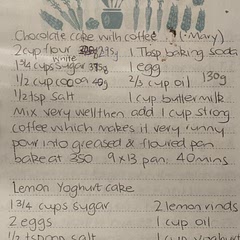 Chocolate cake with coffee (Mary)
2 cup flour 295g 1 Tbsp baking soda
white
1 3/4 cups sugar 395g 1 egg
1/2 cup cocoa 40g 2/3 cup oil 130g
1/2 tsp salt 1 cup buttermilk
Mix very well then add 1 cup strong
coffee which makes it very runny
pour into greased & floured pan
bake at 350 9x13 pan. 40mins
Lemon Yoghurt cake
1 3/4 cups sugar 2 lemon rinds
2 eggs 1 cup oil
1/2 tspoon salt 1 cup yoghurt